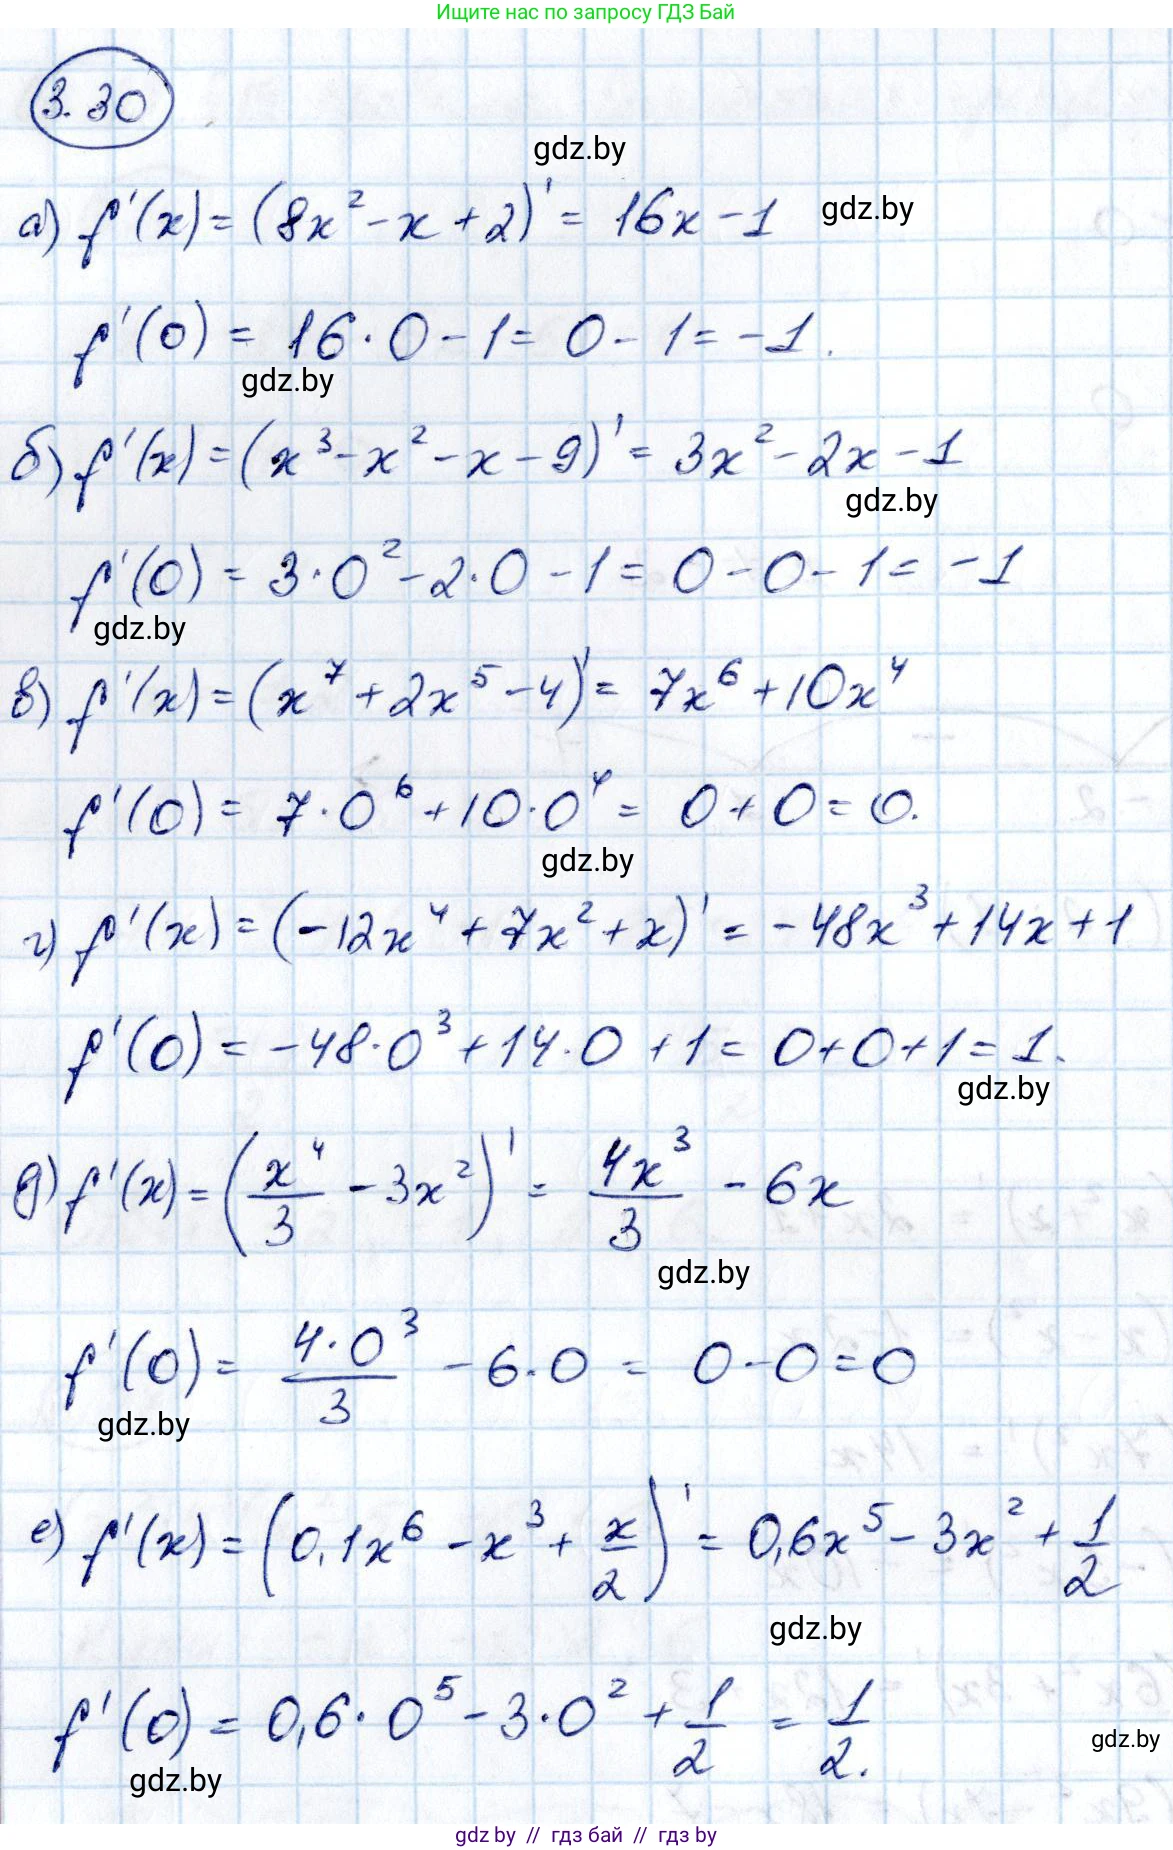 Ищите нас по запросу ГДЗ Бай
3.30
gdz.by
а) f'(x) = (8x² - x + 2)' = 16x - 1 gdz.by
f'(0) = 16·0 - 1 = 0 - 1 = -1.
gdz.by
б) f'(x) = (x³ - x² - x - 9)' = 3x² - 2x - 1
gdz.by
f'(0) = 3·0² - 2·0 - 1 = 0 - 0 - 1 = -1
gdz.by
в) f'(x) = (x⁷ + 2x⁵ - 4)' = 7x⁶ + 10x⁴
f'(0) = 7·0⁶ + 10·0⁴ = 0 + 0 = 0.
gdz.by
г) f'(x) = (-12x⁴ + 7x² + x)' = -48x³ + 14x + 1
f'(0) = -48·0³ + 14·0 + 1 = 0 + 0 + 1 = 1.
gdz.by
д) f'(x) = (x⁴/3 - 3x²)' = 4x³/3 - 6x
gdz.by
f'(0) = 4·0³/3 - 6·0 = 0 - 0 = 0
gdz.by
е) f'(x) = (0,1x⁶ - x³ + x/2)' = 0,6x⁵ - 3x² + 1/2
gdz.by
f'(0) = 0,6·0⁵ - 3·0² + 1/2 = 1/2.
gdz.by
gdz.by
gdz by // гдз бай // гдз by